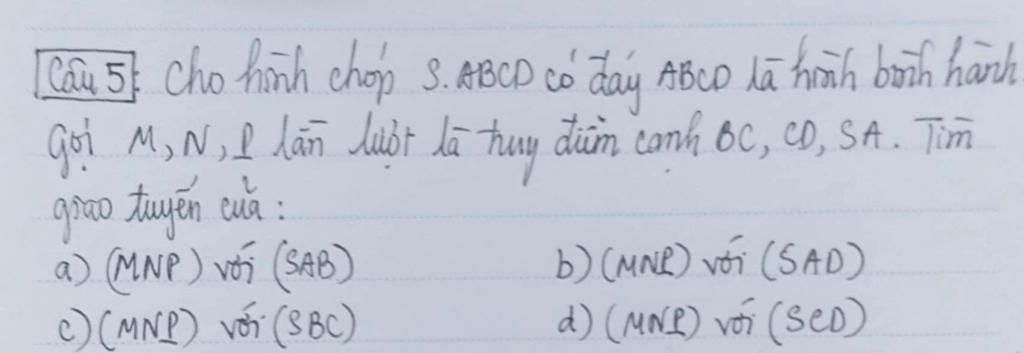 Câu 5: Cho hình chóp S.ABCD có đáy ABCD là hình bình hành
Gọi M, N, P lần lượt là truy điểm cạnh BC, CD, SA. Tìm
giao tuyến của :
a) (MNP) với (SAB) b) (MNP) với (SAD)
c) (MNP) với (SBC) d) (MNP) với (SCD)